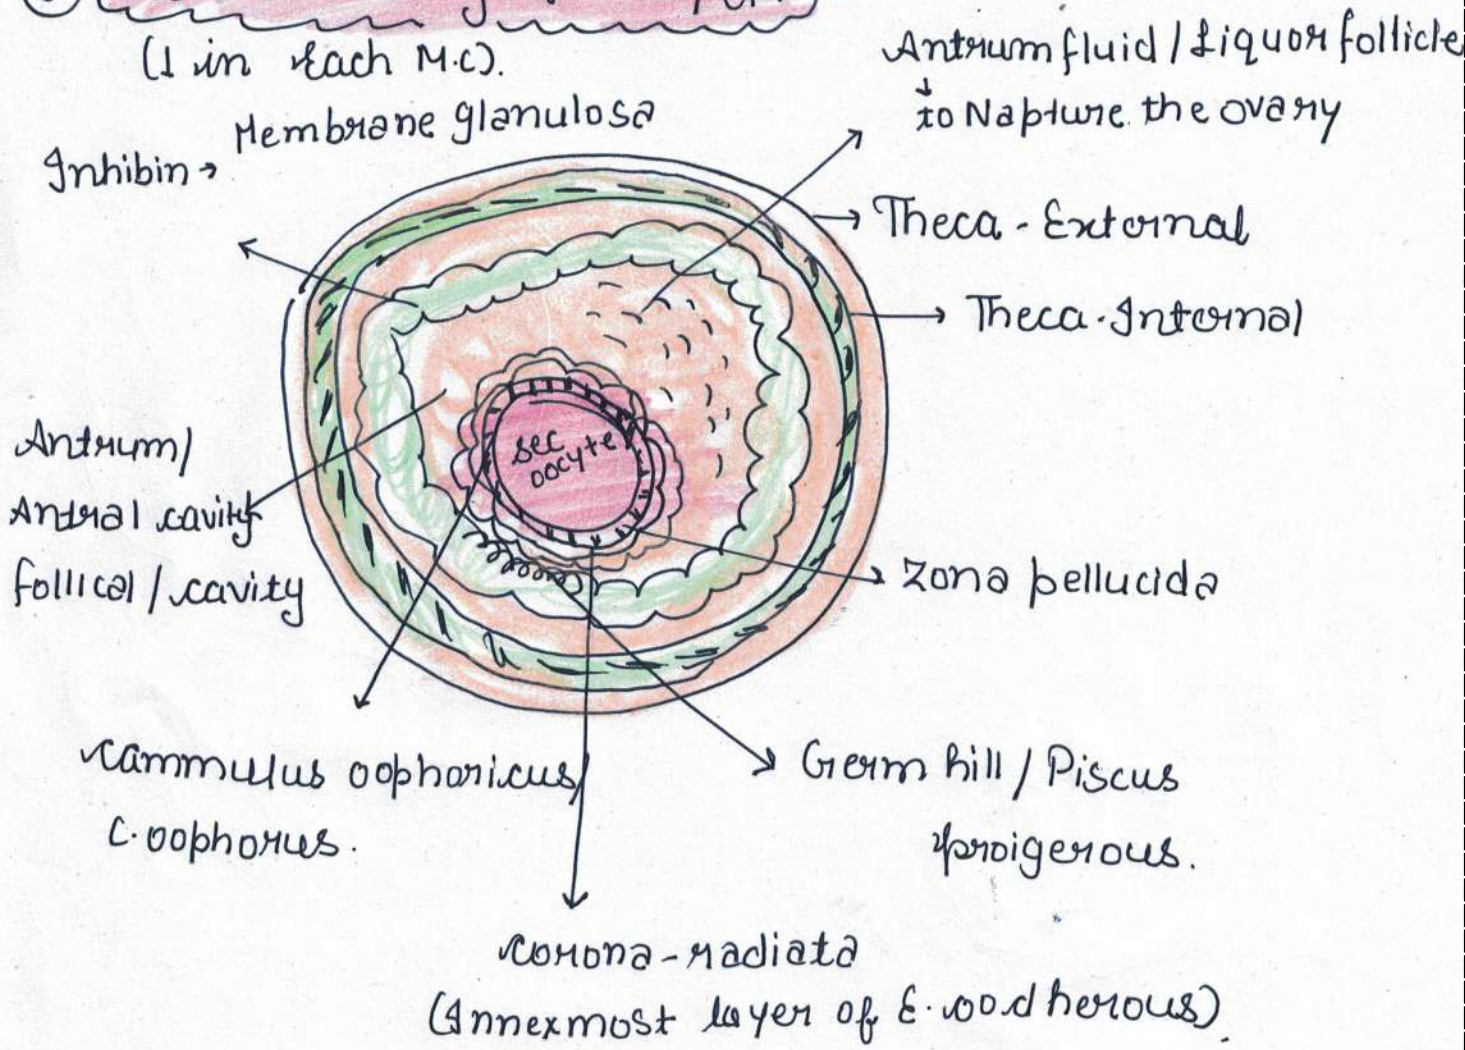 (1 in Each M.C).
Antrum fluid / Liquor follicle
to Napture the ovary
Membrane glanulosa
Inhibin →
Theca - External
Theca - Internal
sec
oocyte
Antrum/
Antral cavity
follical / cavity
Zona pellucida
Cammulus oophoricus/
C. oophorus.
Germ hill / Piscus
proigerous.
Corona - radiata
(Innexmost layer of E. oodherous).